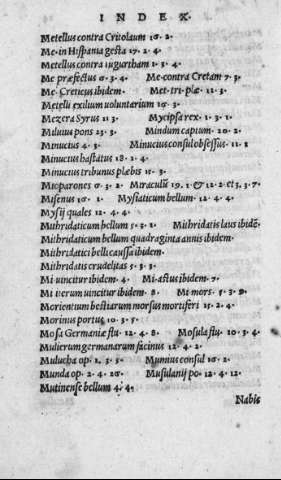 INDEX.
Metellus contra Critolaum 16. 2.
Me. in Hispania gesta 17. 2. 4.
Metellus contra iugurtham 1. 3. 4.
Me præfectus 6. 3. 4. Me. contra Cretam 7. 3.
Me. Creticus ibidem. Met. tri. plæ. 12. 3.
Metelli exilium voluntarium 16. 3.
Mezera Syrus 11 3. Mycipsa rex. 1. 3. 1.
Miluius pons 23. 3. Mindum captum. 20. 2.
Minutius 4. 3. Minucius consul obsessus. 11. 1
Minucius hastatus 18. 2. 4.
Minucius tribunus plæbis 15. 3.
Mioparones 6. 3. 2. Miraculū 19. 1 & 12. 2. et 3. 3. 7.
Misenus 16. 1. Mysiaticum bellum 12. 4. 4.
Mysij quales 12. 4. 4.
Mithridaticum bellum 5. 3. 1. Mithridatis laus ibidē.
Mithridaticum bellum quadraginta annis ibidem.
Mithridatici belli caussa ibidem.
Mithridatis crudelitas 5. 3. 3.
Mi vincitur ibidem. 4. Mi. astus ibidem. 7.
Mi iterum uincitur ibidem. 8. Mi mors. 5. 3. 9.
Morientium bestiarum morsus mortiferi 15. 2. 4.
Morinus portus 10. 3. 5.
Mosa Germaniæ flu. 12. 4. 8. Mosula flu. 10. 3. 4.
Mulierum germanarum facinus 12. 4. 2.
Mulucha op. 1. 3. 5. Mumius consul 16. 2.
Munda op. 2. 4. 26. Musulanij po. 12. 4. 12.
Mutinense bellum 4. 4.
Nabis